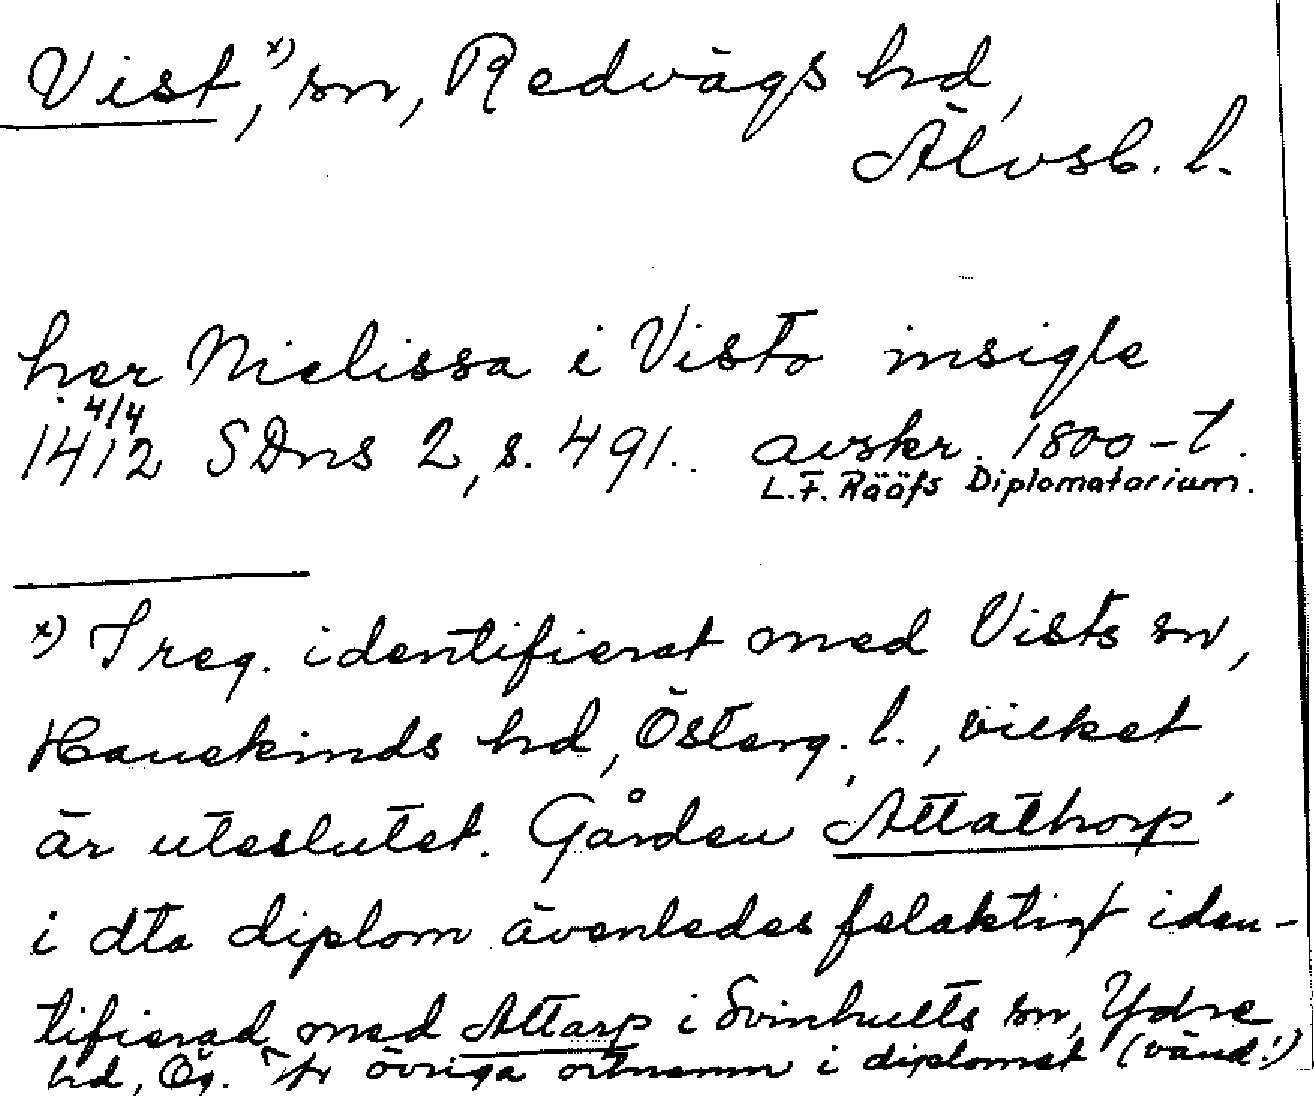 Vist,ˣ⁾ sn, Redvägs hd,
Älvsb. l.
her Nielissa i Visto insigle
4/4
1412 SDns 2, s. 491. avskr. 1800-t.
L.F. Rääfs Diplomatarium.
x) I reg. identifierat med Vists sn,
Hanekinds hd, Österg. l., vilket
är uteslutet. Gården 'Attathorp'
i dta diplom ävenledes felaktigt iden-
tifierad med Attarp i Svinhults sn, Ydre
hd, Ög. Jfr övriga ortnamn i diplomet (vänd!)